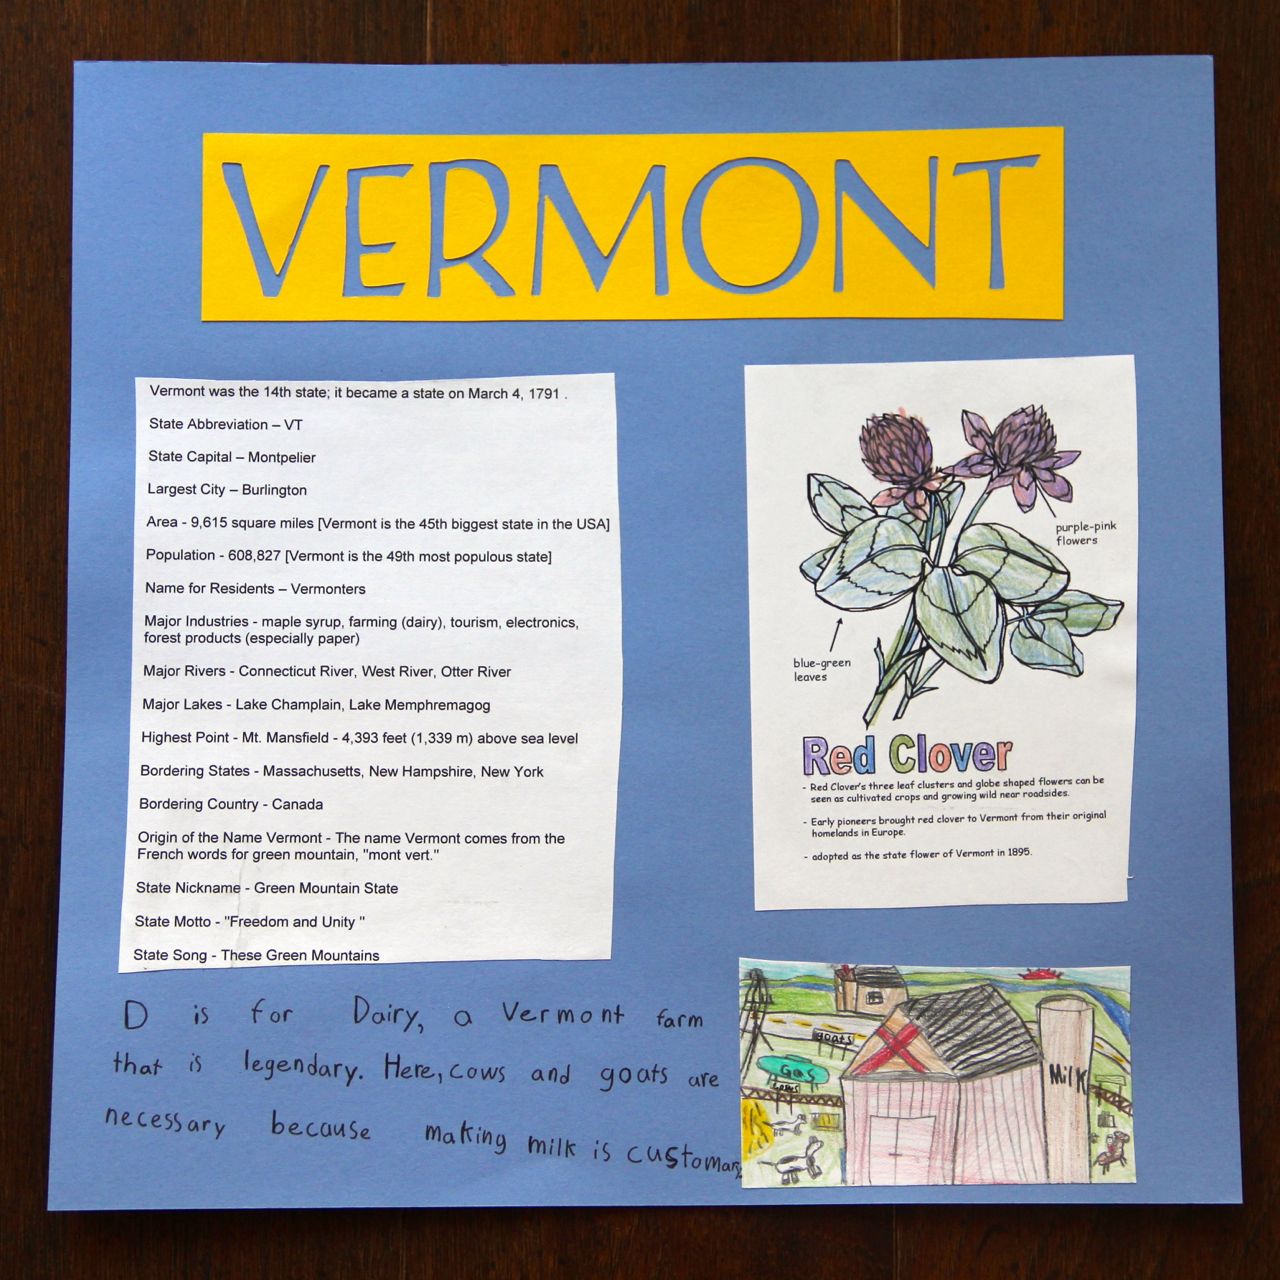 VERMONT
Vermont was the 14th state; it became a state on March 4, 1791 .
State Abbreviation – VT
State Capital – Montpelier
Largest City – Burlington
Area - 9,615 square miles [Vermont is the 45th biggest state in the USA]
Population - 608,827 [Vermont is the 49th most populous state]
Name for Residents – Vermonters
Major Industries - maple syrup, farming (dairy), tourism, electronics,
forest products (especially paper)
Major Rivers - Connecticut River, West River, Otter River
Major Lakes - Lake Champlain, Lake Memphremagog
Highest Point - Mt. Mansfield - 4,393 feet (1,339 m) above sea level
Bordering States - Massachusetts, New Hampshire, New York
Bordering Country - Canada
Origin of the Name Vermont - The name Vermont comes from the
French words for green mountain, "mont vert."
State Nickname - Green Mountain State
State Motto - "Freedom and Unity "
State Song - These Green Mountains
purple-pink
flowers
blue-green
leaves
Red Clover
- Red Clover's three leaf clusters and globe shaped flowers can be
seen as cultivated crops and growing wild near roadsides.
- Early pioneers brought red clover to Vermont from their original
homelands in Europe.
- adopted as the state flower of Vermont in 1895.
D is for Dairy, a Vermont farm
that is legendary. Here, cows and goats are
necessary because making milk is customary
goats
Gas
cows
Milk